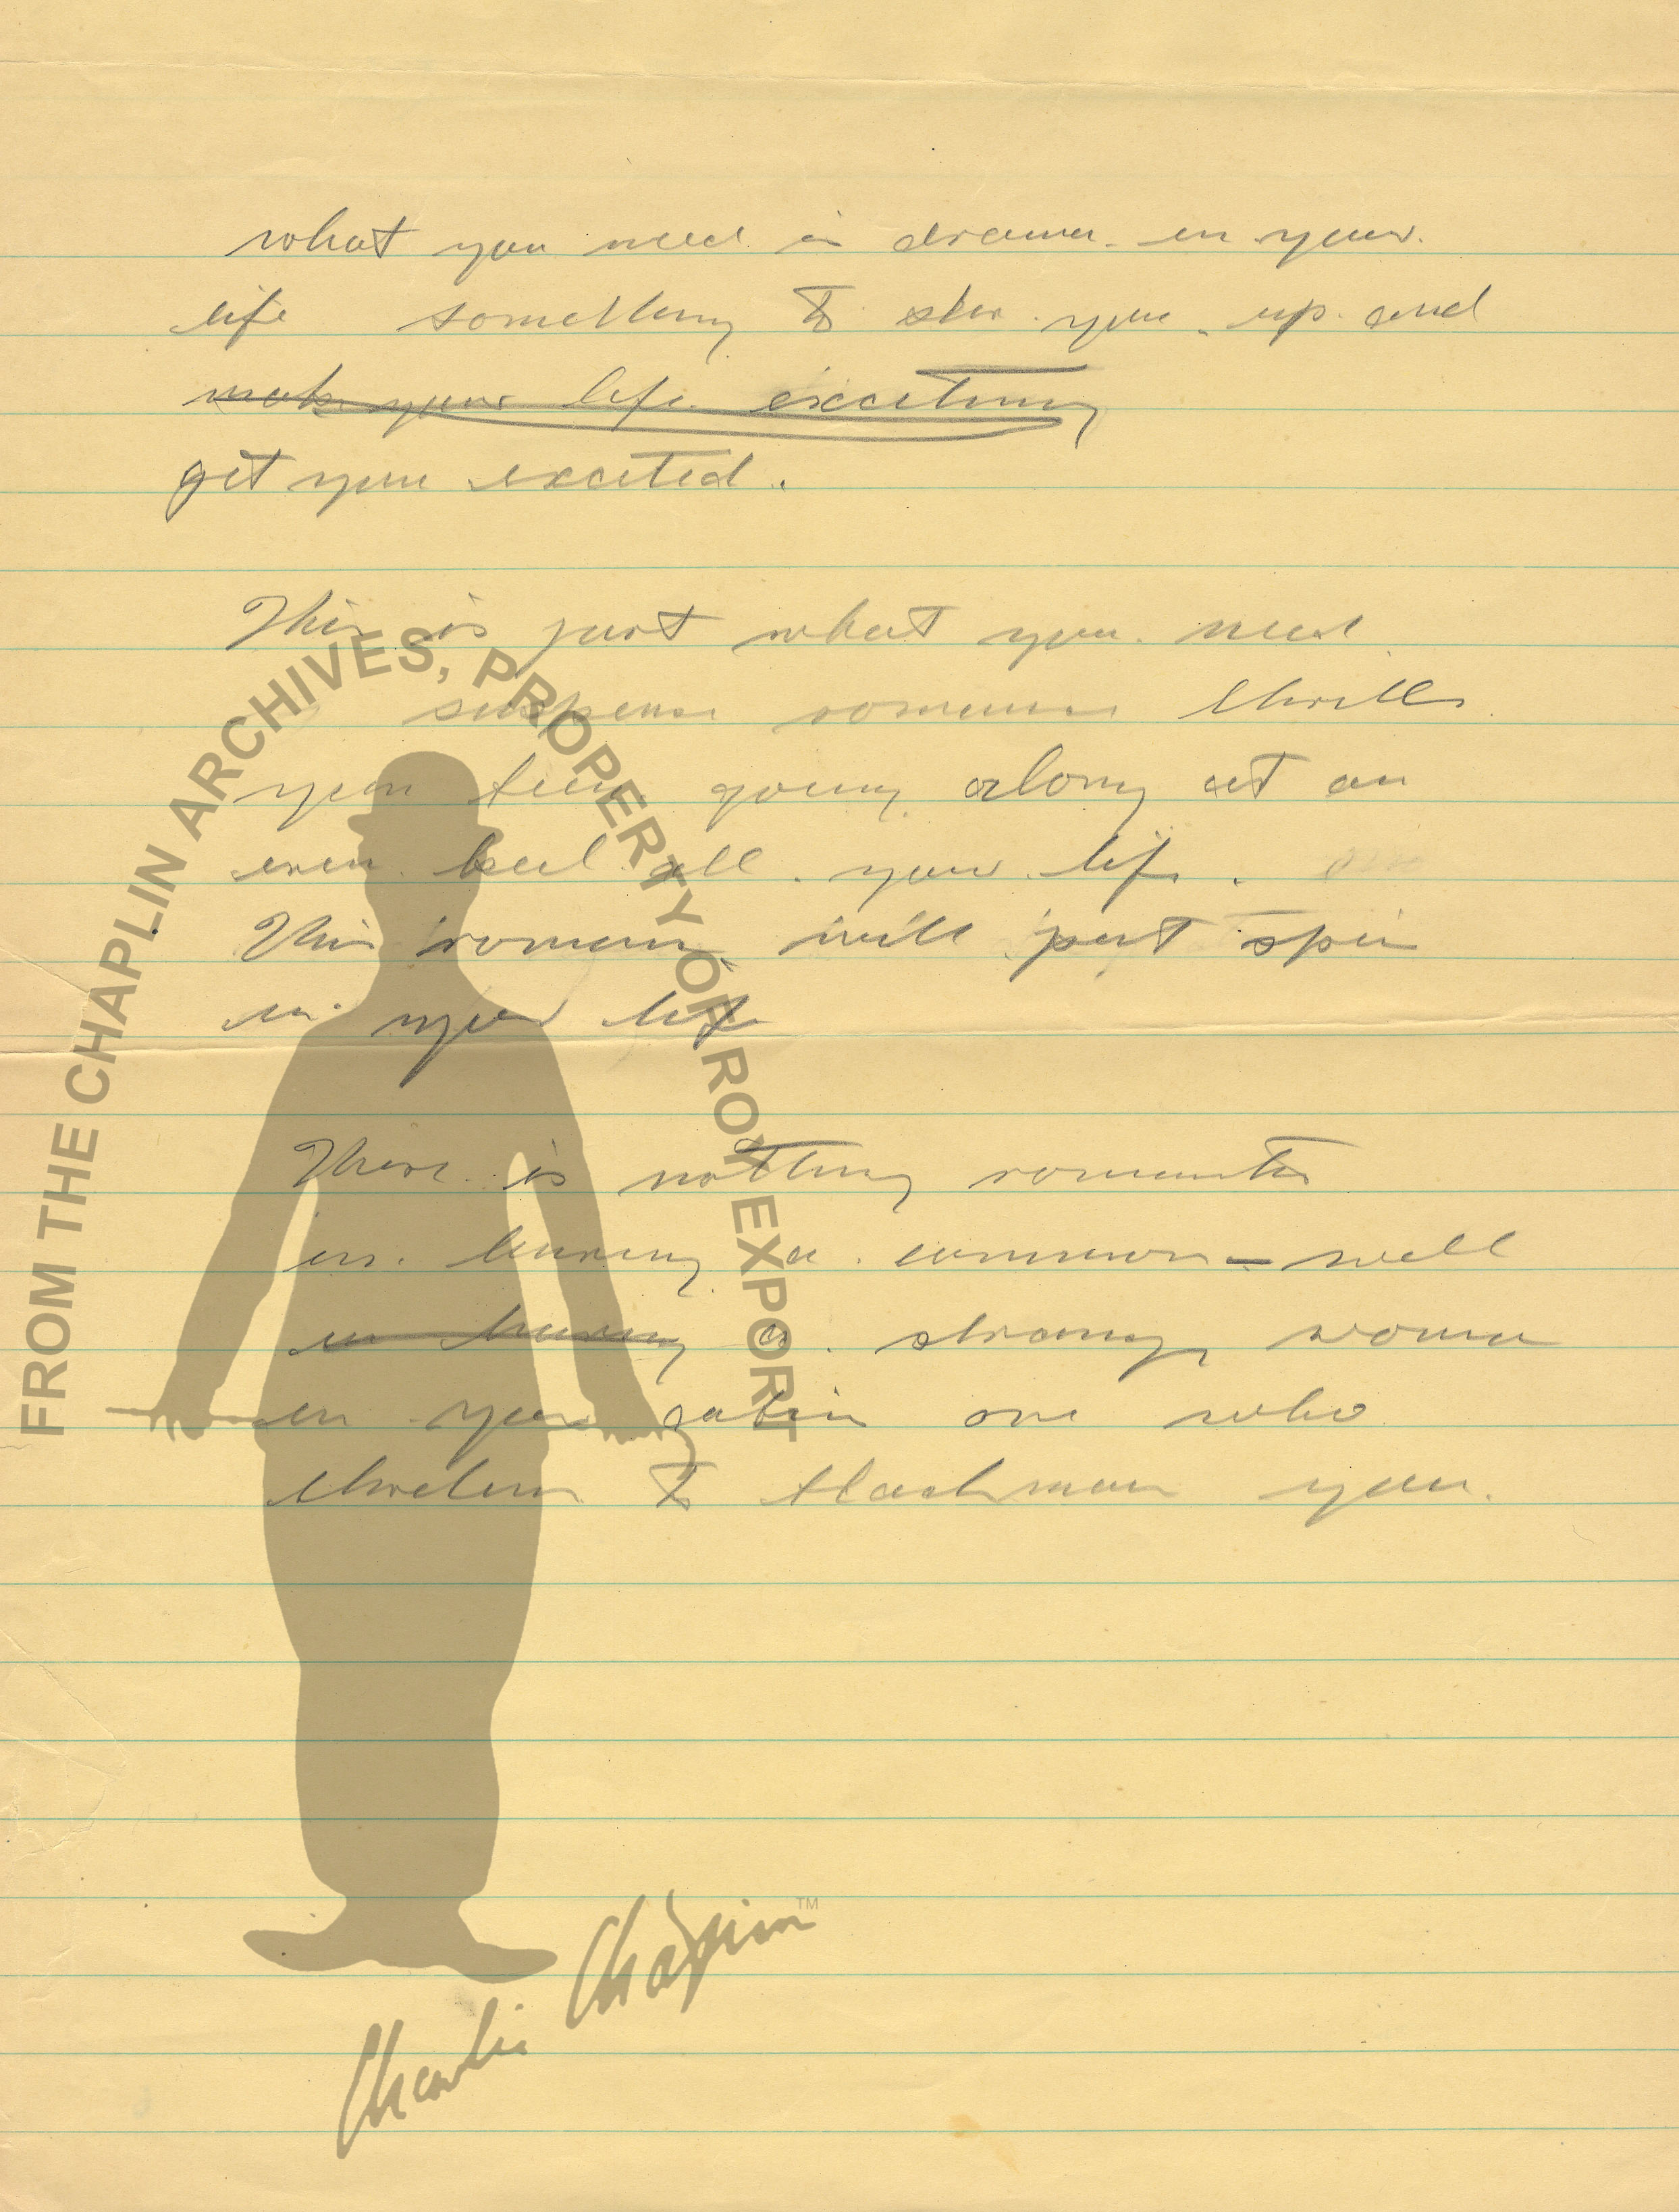 what you need is drama in your
life something to stir you up and
make your life exciting
get you excited.
This is just what you need
suspense romance thrills
your been going along at an
even keel all your life.
This woman will put spice
in your life
There is nothing romantic
in having a common - well
in having a strange woman
in your cabin one who
threatens to blackmail you.
FROM THE CHAPLIN ARCHIVES, PROPERTY OF ROY EXPORT
Charlie Chaplin™